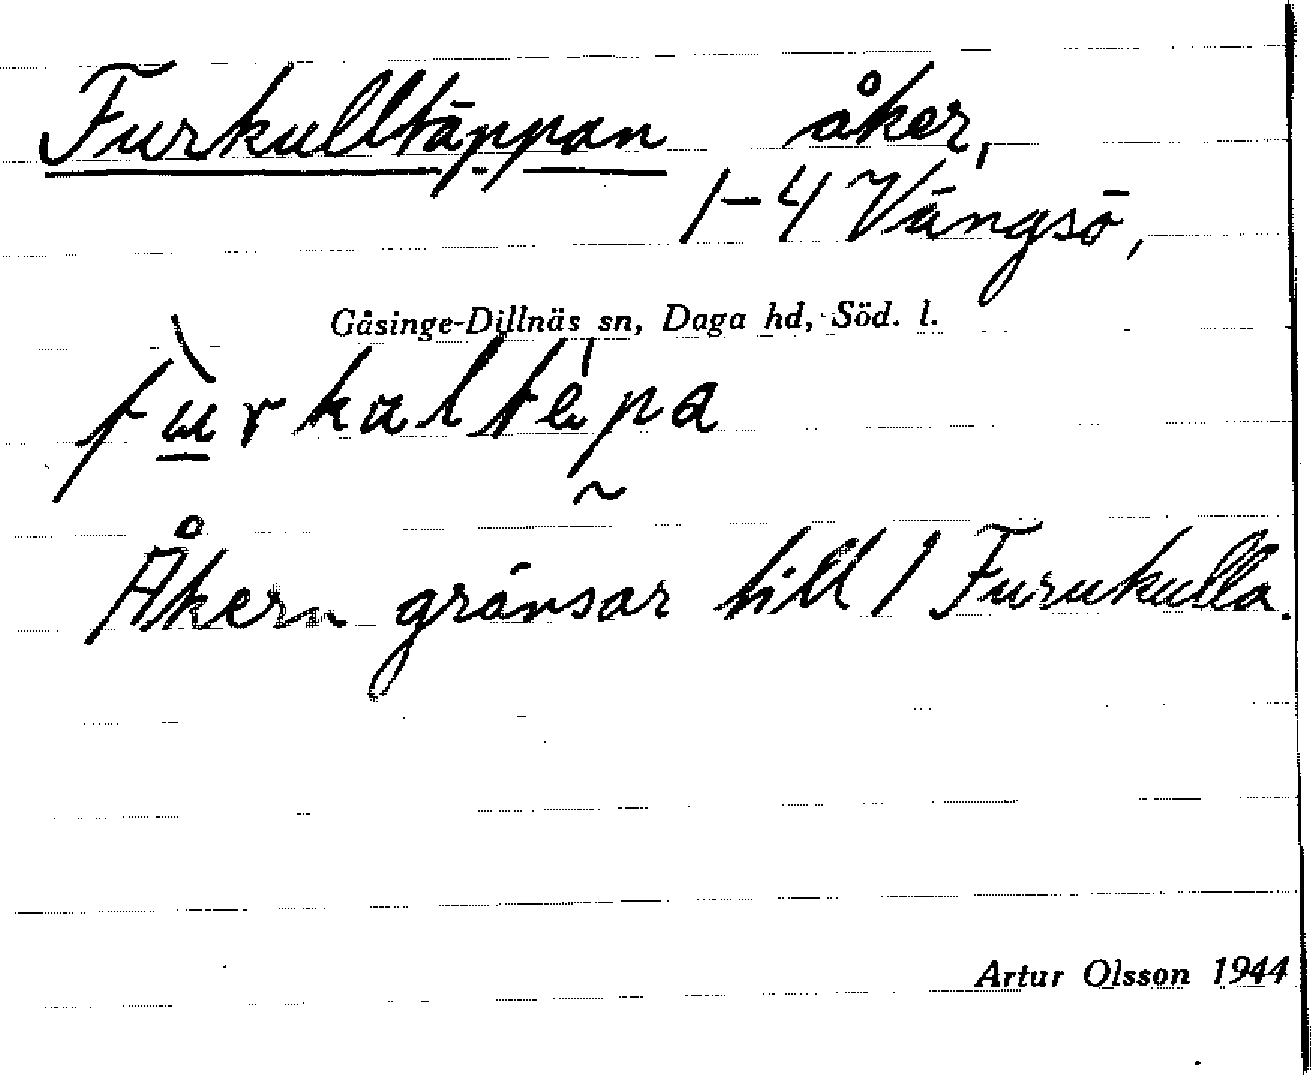 Furkulltäppan åker,
1-4 Vängsö,
Gåsinge-Dillnäs sn, Daga hd, Söd. l.
Åkern gränsar till 1 Furukulla.
Artur Olsson 1944